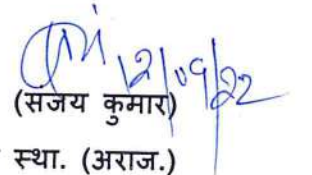 12/09/22
(संजय कुमार)
स्था. (अराज.)